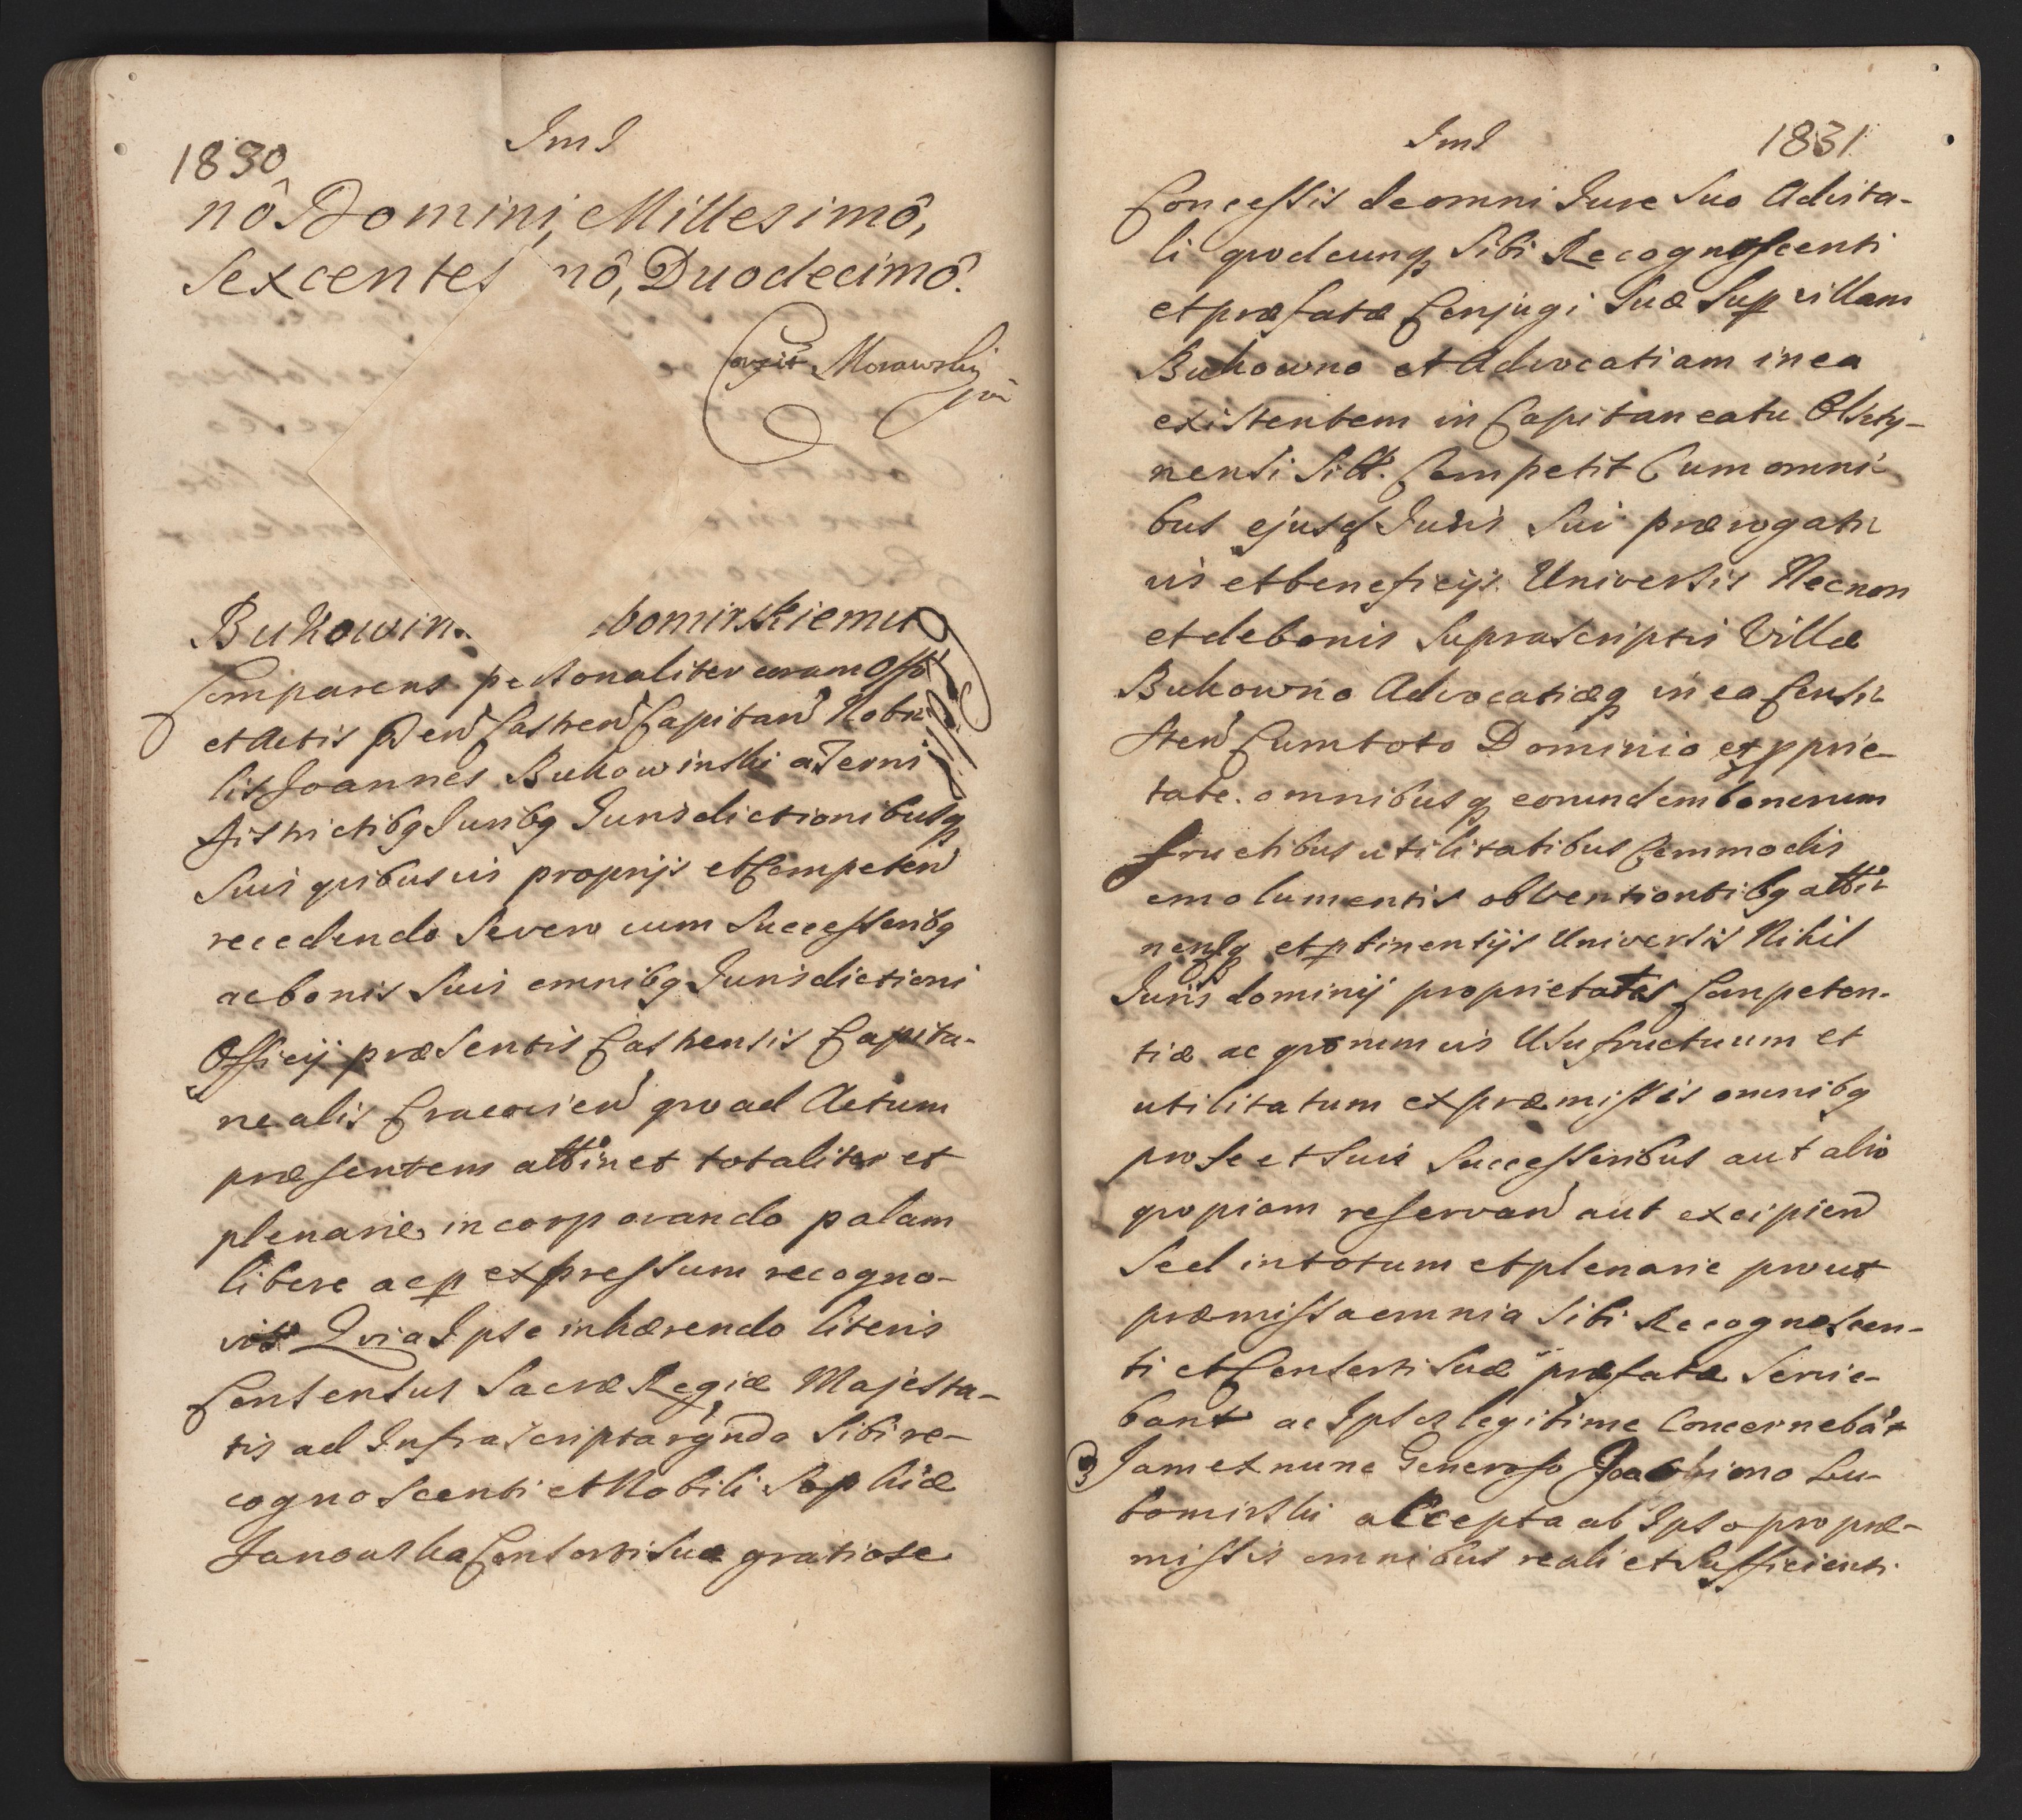 1830
ImI
nô Domini, Millesimô,
Sexcentes nô, Duodecimô.
Morawsky
Bukowin bomirskiemu
Comparens personaliter coram Offô
et Actis Pend Castren Capitan Nobi
lis Joannes Bukowinski a Terris
districtibq Juribq Jurisdictionibusq
Suis quibusvis proprijs et Competen
recedendo Severo cum Successoribq
ac bonis Suis omnibq Jurisdictioni
Officij præsentis Castrensis Capita-
nealis Cracovien quoad Actum
præsentem attinet totaliter et
plenarie incorporando palam
libere ac p expressum recogno-
vit Quia Ipse inhærendo literis
Consensus Sacræ Regiæ Majesta-
tis ad Infrascripta rgnda Sibi re-
cognoscenti et Nobili Sophiæ
Consorti Suæ gratiose
ImI
1831
Concessis de omni Jure Suo Advita-
li quodcunq Sibi Recognoscenti
et præfatæ Conjugi Suæ Sup villam
Bukowno et Advocatiam in ea
existentem in Capitaneatu Olszty-
nensi Sitt. Competit Cum omni-
bus ejusq Juris Sui prærogati
vis et beneficijs Universis Necnon
et de bonis Suprascriptis Villæ
Bukowno Advocatiæq in ea Consi
sten Cum toto Dominio et pprie-
tate. omnibusq eorundem bonorum
fructibus utilitatibus Commodis
emolumentis obventionibq atti-
nen et ptinentijs Universis Nihil
Juris dominij proprietatis Competen-
tiæ ac quorumvis Usufructuum et
utilitatum ex præmissis omnibq
pro Se et Suis Successoribus aut alio
quopiam reservan aut excipien
Sed in totum et plenarie prout
præmissa omnia Sibi Recognoscen-
ti et Consorti Suæ præfatæ Servie-
bant ac Ipsos legitime Concernebāt
Jam ex nunc Generoso Joachimo Lu-
bomirski accepta ab Ipso pro præ-
missis omnibus reali et Sufficienti